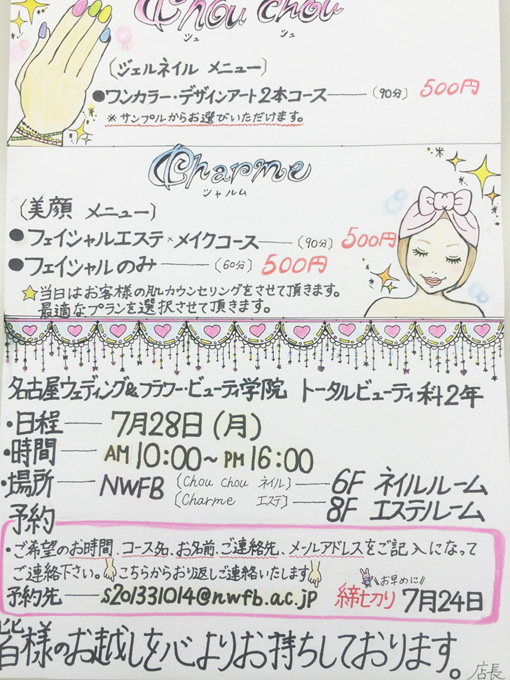 Chou chou
シュ シュ
〔ジェルネイル メニュー〕
●ワンカラー・デザインアート2本コース――(90分) 500円
※サンプルからお選びいただけます。
Charme
シャルム
〔美顔 メニュー〕
●フェイシャルエステ×メイクコース――(90分) 500円
●フェイシャルのみ――(60分) 500円
☆当日はお客様の肌カウンセリングをさせて頂きます。
最適なプランを選択させて頂きます。
名古屋ウェディング&フラワー・ビューティ学院 トータルビューティ科2年
・日程――7月28日(月)
・時間――AM10:00～PM16:00
・場所――NWFB〔Chou chou ネイル〕――6F ネイルルーム
〔Charme エステ〕――8F エステルーム
予約
・ご希望のお時間、コース名、お名前、ご連絡先、メールアドレスをご記入になって
ご連絡下さい。こちらからおり返しご連絡いたします
お早めに!!
予約先――s201331014@nwfb.ac.jp 締切り 7月24日
皆様のお越しを心よりお待ちしております。
店長